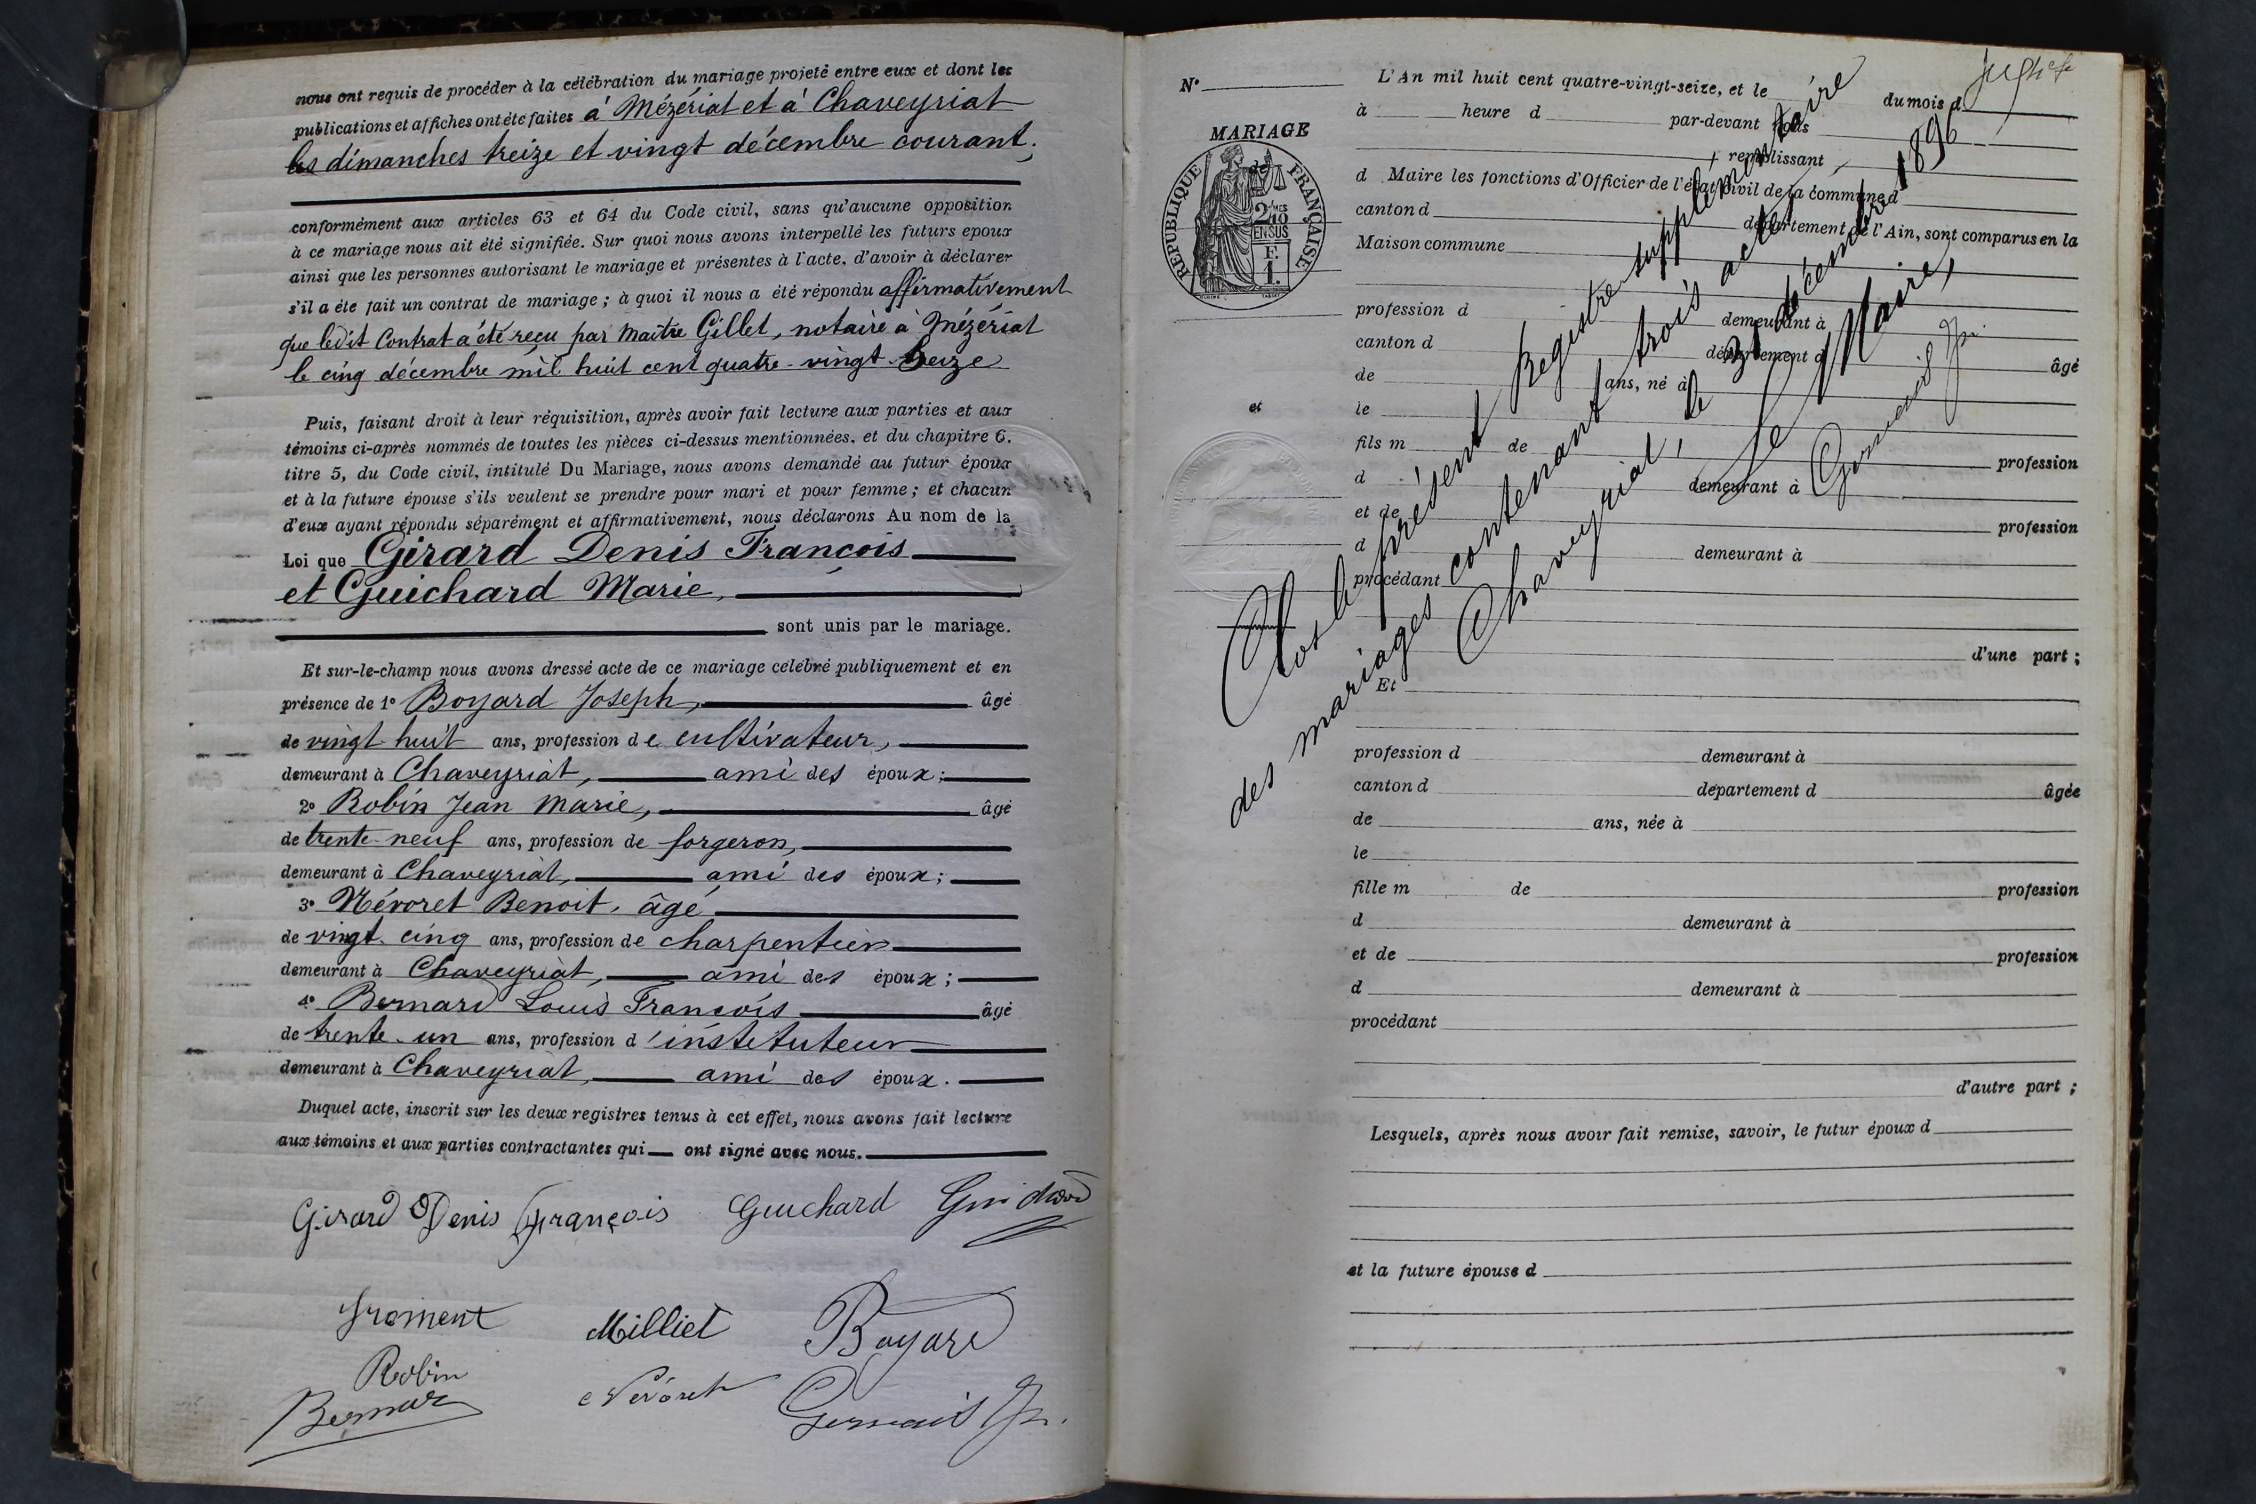 nous ont requis de procéder à la célébration du mariage projeté entre eux et dont les
publications et affiches ont été faites à Mézériat et à Chaveyriat
les dimanches treize et vingt décembre courant;
conformément aux articles 63 et 64 du Code civil, sans qu'aucune opposition
à ce mariage nous ait été signifiée. Sur quoi nous avons interpellé les futurs époux
ainsi que les personnes autorisant le mariage et présentes à l'acte, d'avoir à déclarer
s'il a été fait un contrat de mariage; à quoi il nous a été répondu affirmativement
que ledit Contrat a été reçu par Maître Gillet, notaire à Mézériat
le cinq décembre mil huit cent quatre-vingt-seize
Puis, faisant droit à leur réquisition, après avoir fait lecture aux parties et aux
témoins ci-après nommés de toutes les pièces ci-dessus mentionnées, et du chapitre 6,
titre 5, du Code civil, intitulé Du Mariage, nous avons demandé au futur époux
et à la future épouse s'ils veulent se prendre pour mari et pour femme; et chacun
d'eux ayant répondu séparément et affirmativement, nous déclarons Au nom de la
Loi que Girard Denis François
et Guichard Marie,
sont unis par le mariage.
Et sur-le-champ nous avons dressé acte de ce mariage célébré publiquement et en
présence de 1° Boyard Joseph, âgé
de vingt huit ans, profession de cultivateur,
demeurant à Chaveyriat, ami des époux;
2° Robin Jean Marie, âgé
de trente-neuf ans, profession de forgeron,
demeurant à Chaveyriat, ami des époux;
3° Névoret Benoit, âgé
de vingt-cinq ans, profession de charpentier
demeurant à Chaveyriat, ami des époux;
4° Bernard Louis François âgé
de trente-un ans, profession d'instituteur
demeurant à Chaveyriat, ami des époux.
Duquel acte, inscrit sur les deux registres tenus à cet effet, nous avons fait lecture
aux témoins et aux parties contractantes qui ont signé avec nous.
Girard Denis François Guichard Guichard
froment Milliet Boyard
Robin Névoret
Bernard Germain
N°
L'An mil huit cent quatre-vingt-seize, et le du mois d
à heure d par-devant nous
MARIAGE
remplissant
de
d Maire les fonctions d'Officier de l'état civil de la commune d
canton d département de l'Ain, sont comparus en la
Maison commune
RÉPUBLIQUE FRANÇAISE
2/10 MES EN SUS
F.
1.
profession d demeurant à
canton d département d âgé
de ans, né à
et
le
fils m de profession
d demeurant à
et de profession
d demeurant à
procédant
d'une part;
Et
profession d demeurant à
canton d département d âgée
de ans, née à
le
fille m de profession
d demeurant à
et de profession
d demeurant à
procédant
d'autre part;
Lesquels, après nous avoir fait remise, savoir, le futur époux d
et la future épouse d
Clos le présent Registre supplémentaire
des mariages contenant trois actes
Chaveyriat, le 31 décembre 1896
Le Maire,